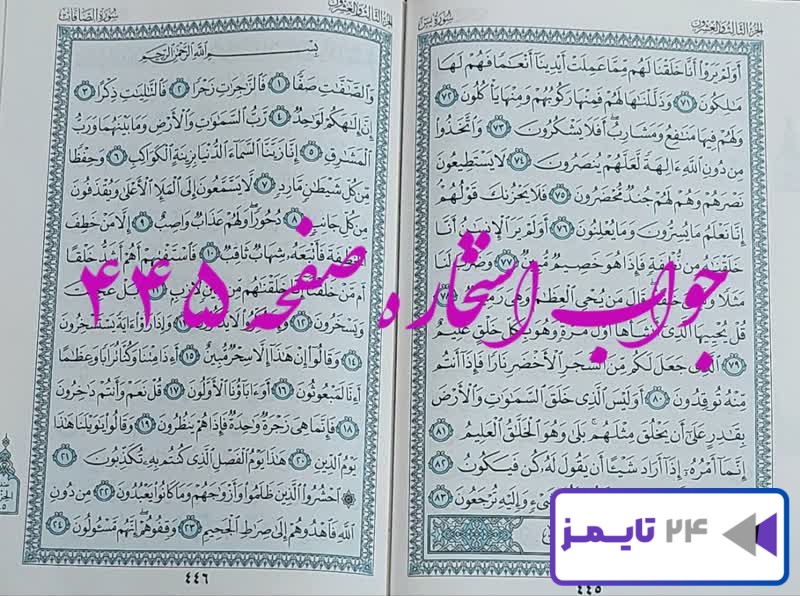 الجزء الثالث والعشرون
سورة يس
أَوَلَمْ يَرَوْا أَنَّا خَلَقْنَا لَهُم مِّمَّا عَمِلَتْ أَيْدِينَا أَنْعَامًا فَهُمْ لَهَا
مَالِكُونَ ٧١ وَذَلَّلْنَاهَا لَهُمْ فَمِنْهَا رَكُوبُهُمْ وَمِنْهَا يَأْكُلُونَ ٧٢
وَلَهُمْ فِيهَا مَنَافِعُ وَمَشَارِبُ أَفَلَا يَشْكُرُونَ ٧٣ وَاتَّخَذُوا
مِن دُونِ اللَّهِ ءَالِهَةً لَّعَلَّهُمْ يُنصَرُونَ ٧٤ لَا يَسْتَطِيعُونَ
نَصْرَهُمْ وَهُمْ لَهُمْ جُندٌ مُّحْضَرُونَ ٧٥ فَلَا يَحْزُنكَ قَوْلُهُمْ
إِنَّا نَعْلَمُ مَا يُسِرُّونَ وَمَا يُعْلِنُونَ ٧٦ أَوَلَمْ يَرَ الْإِنسَانُ أَنَّا
خَلَقْنَاهُ مِن نُّطْفَةٍ فَإِذَا هُوَ خَصِيمٌ ٧٧ وَضَرَبَ لَنَا
مَثَلًا وَنَسِيَ خَلْقَهُ قَالَ مَن يُحْيِي الْعِظَامَ وَهِيَ رَمِيمٌ ٧٨
قُلْ يُحْيِيهَا الَّذِي أَنشَأَهَا أَوَّلَ مَرَّةٍ وَهُوَ بِكُلِّ خَلْقٍ عَلِيمٌ
٧٩ الَّذِي جَعَلَ لَكُم مِّنَ الشَّجَرِ الْأَخْضَرِ نَارًا فَإِذَا أَنتُم
مِّنْهُ تُوقِدُونَ ٨٠ أَوَلَيْسَ الَّذِي خَلَقَ السَّمَاوَاتِ وَالْأَرْضَ
بِقَادِرٍ عَلَى أَن يَخْلُقَ مِثْلَهُم بَلَى وَهُوَ الْخَلَّاقُ الْعَلِيمُ ٨١
إِنَّمَا أَمْرُهُ إِذَا أَرَادَ شَيْئًا أَن يَقُولَ لَهُ كُن فَيَكُونُ ٨٢
شَيْءٍ وَإِلَيْهِ تُرْجَعُونَ ٨٣
٤٤٥
الجزء الثالث والعشرون
سورة الصافات
بِسْمِ اللَّهِ الرَّحْمَنِ الرَّحِيمِ
وَالصَّافَّاتِ صَفًّا ١ فَالزَّاجِرَاتِ زَجْرًا ٢ فَالتَّالِيَاتِ ذِكْرًا ٣
إِنَّ إِلَهَكُمْ لَوَاحِدٌ ٤ رَّبُّ السَّمَاوَاتِ وَالْأَرْضِ وَمَا بَيْنَهُمَا وَرَبُّ
الْمَشَارِقِ ٥ إِنَّا زَيَّنَّا السَّمَاءَ الدُّنْيَا بِزِينَةٍ الْكَوَاكِبِ ٦ وَحِفْظًا
مِّن كُلِّ شَيْطَانٍ مَّارِدٍ ٧ لَّا يَسَّمَّعُونَ إِلَى الْمَلَإِ الْأَعْلَى وَيُقْذَفُونَ
مِن كُلِّ جَانِبٍ ٨ دُحُورًا وَلَهُمْ عَذَابٌ وَاصِبٌ ٩ إِلَّا مَنْ خَطِفَ
الْخَطْفَةَ فَأَتْبَعَهُ شِهَابٌ ثَاقِبٌ ١٠ فَاسْتَفْتِهِمْ أَهُمْ أَشَدُّ خَلْقًا
أَم مَّنْ خَلَقْنَا إِنَّا خَلَقْنَاهُم مِّن طِينٍ لَّازِبٍ ١١ بَلْ عَجِبْتَ
وَيَسْخَرُونَ ١٢ وَإِذَا ذُكِّرُوا لَا يَذْكُرُونَ ١٣ وَإِذَا رَأَوْا ءَايَةً يَسْتَسْخِرُونَ
١٤ وَقَالُوا إِنْ هَذَا إِلَّا سِحْرٌ مُّبِينٌ ١٥ أَءِذَا مِتْنَا وَكُنَّا تُرَابًا وَعِظَامًا
أَءِنَّا لَمَبْعُوثُونَ ١٦ أَوَءَابَاؤُنَا الْأَوَّلُونَ ١٧ قُلْ نَعَمْ وَأَنتُمْ دَاخِرُونَ
١٨ فَإِنَّمَا هِيَ زَجْرَةٌ وَاحِدَةٌ فَإِذَا هُمْ يَنظُرُونَ ١٩ وَقَالُوا يَاوَيْلَنَا هَذَا
يَوْمُ الدِّينِ ٢٠ هَذَا يَوْمُ الْفَصْلِ الَّذِي كُنتُم بِهِ تُكَذِّبُونَ ٢١
احْشُرُوا الَّذِينَ ظَلَمُوا وَأَزْوَاجَهُمْ وَمَا كَانُوا يَعْبُدُونَ ٢٢ مِن دُونِ
اللَّهِ فَاهْدُوهُمْ إِلَى صِرَاطِ الْجَحِيمِ ٢٣ وَقِفُوهُمْ إِنَّهُم مَّسْئُولُونَ ٢٤
٤٤٦
جواب استخاره صفحه ۴۴۵
۲۴ تایمز